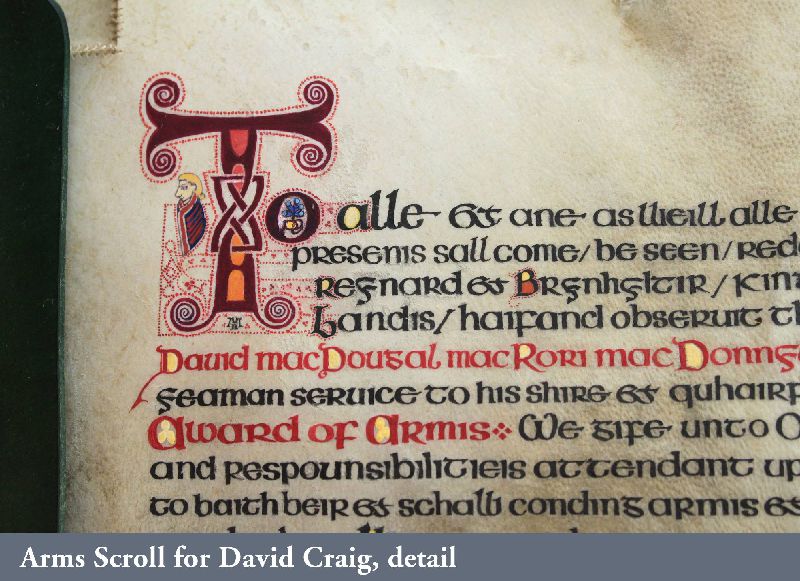 To alle & ane as weill alle
presents sall come/ be seen/ red
Reȝnard & / Kin
Landis/ haifand obseruit th
Dauid mac Dougal mac Rori mac Donnȝ
ȝeaman seruice to his shire & quhairp
Award of Armis We gife unto
and respounsibilitieis attendant up
to baith beir & schaw conding armis &
Arms Scroll for David Craig, detail